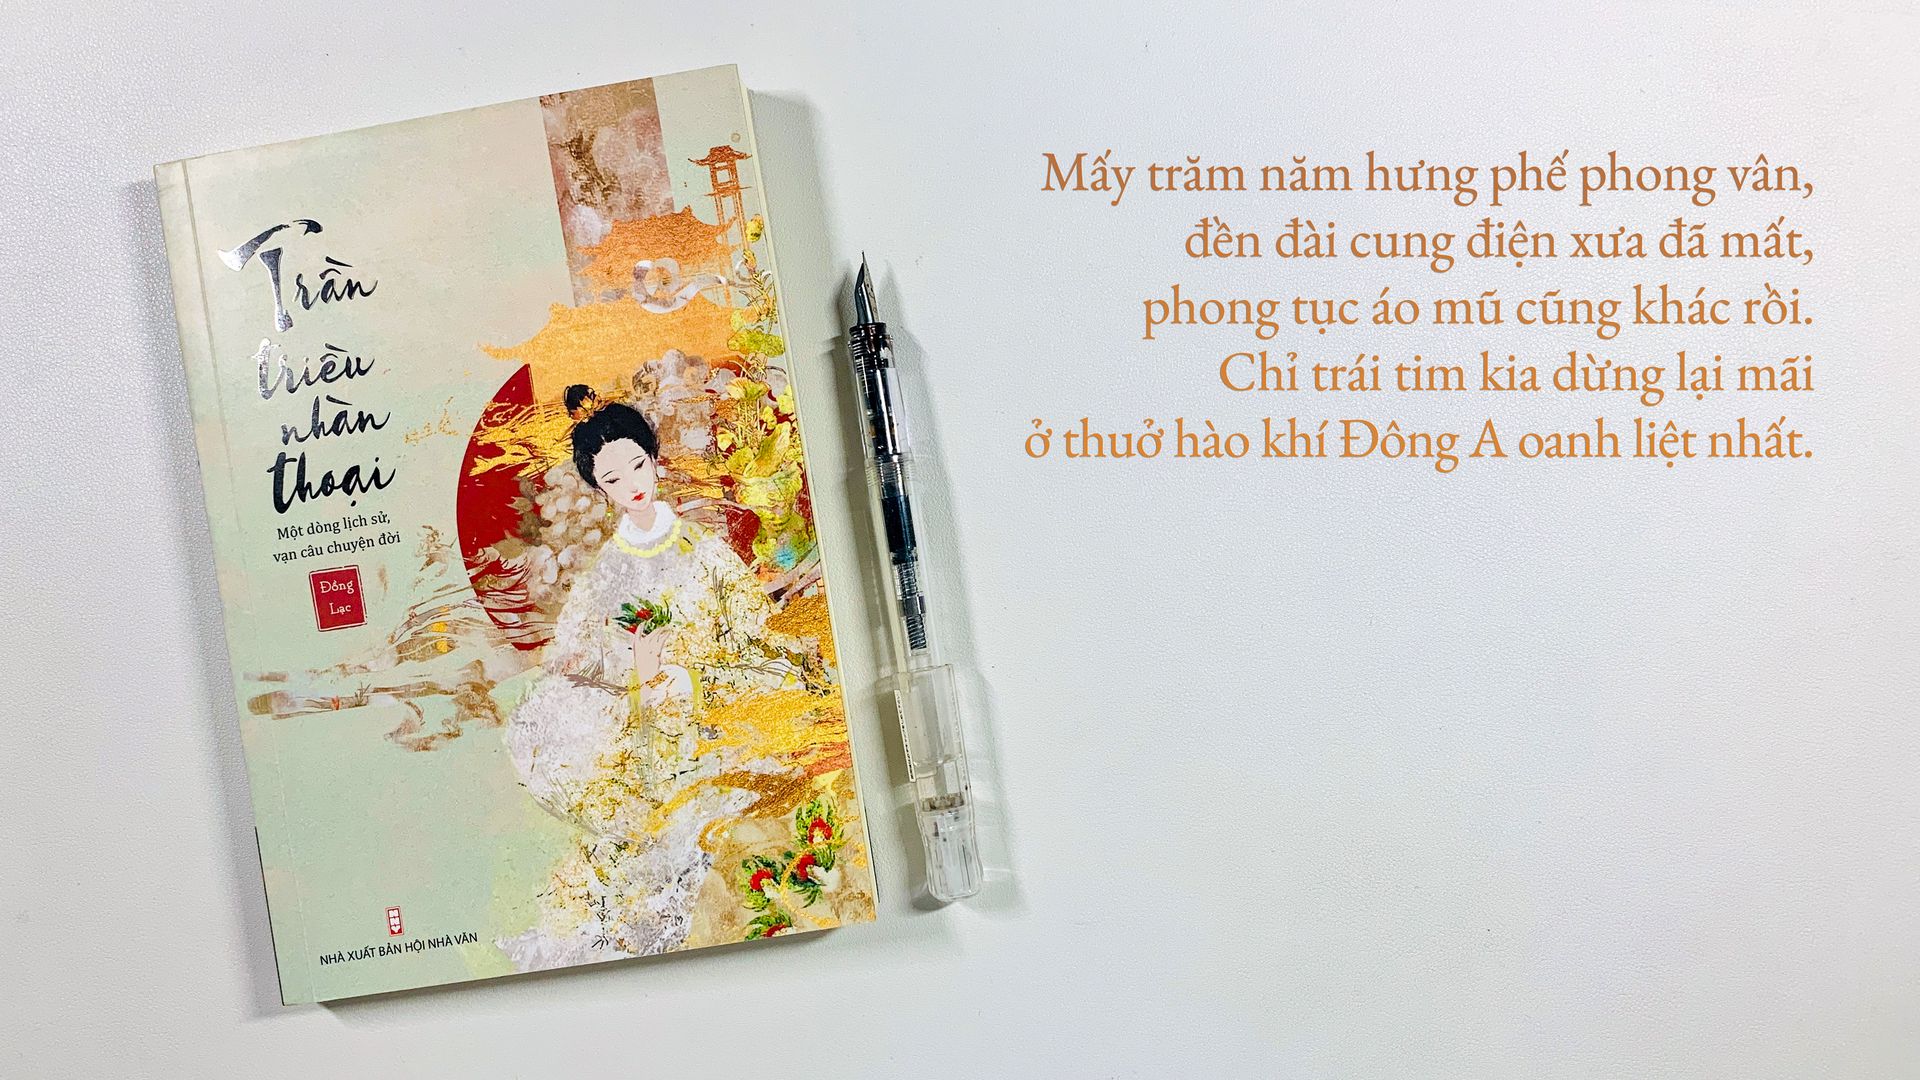 Trần
triều
nhàn
thoại
Một dòng lịch sử,
vạn câu chuyện đời
Đông
Lạc
NHÀ XUẤT BẢN HỘI NHÀ VĂN
Mấy trăm năm hưng phế phong vân,
đền đài cung điện xưa đã mất,
phong tục áo mũ cũng khác rồi.
Chỉ trái tim kia dừng lại mãi
ở thuở hào khí Đông A oanh liệt nhất.